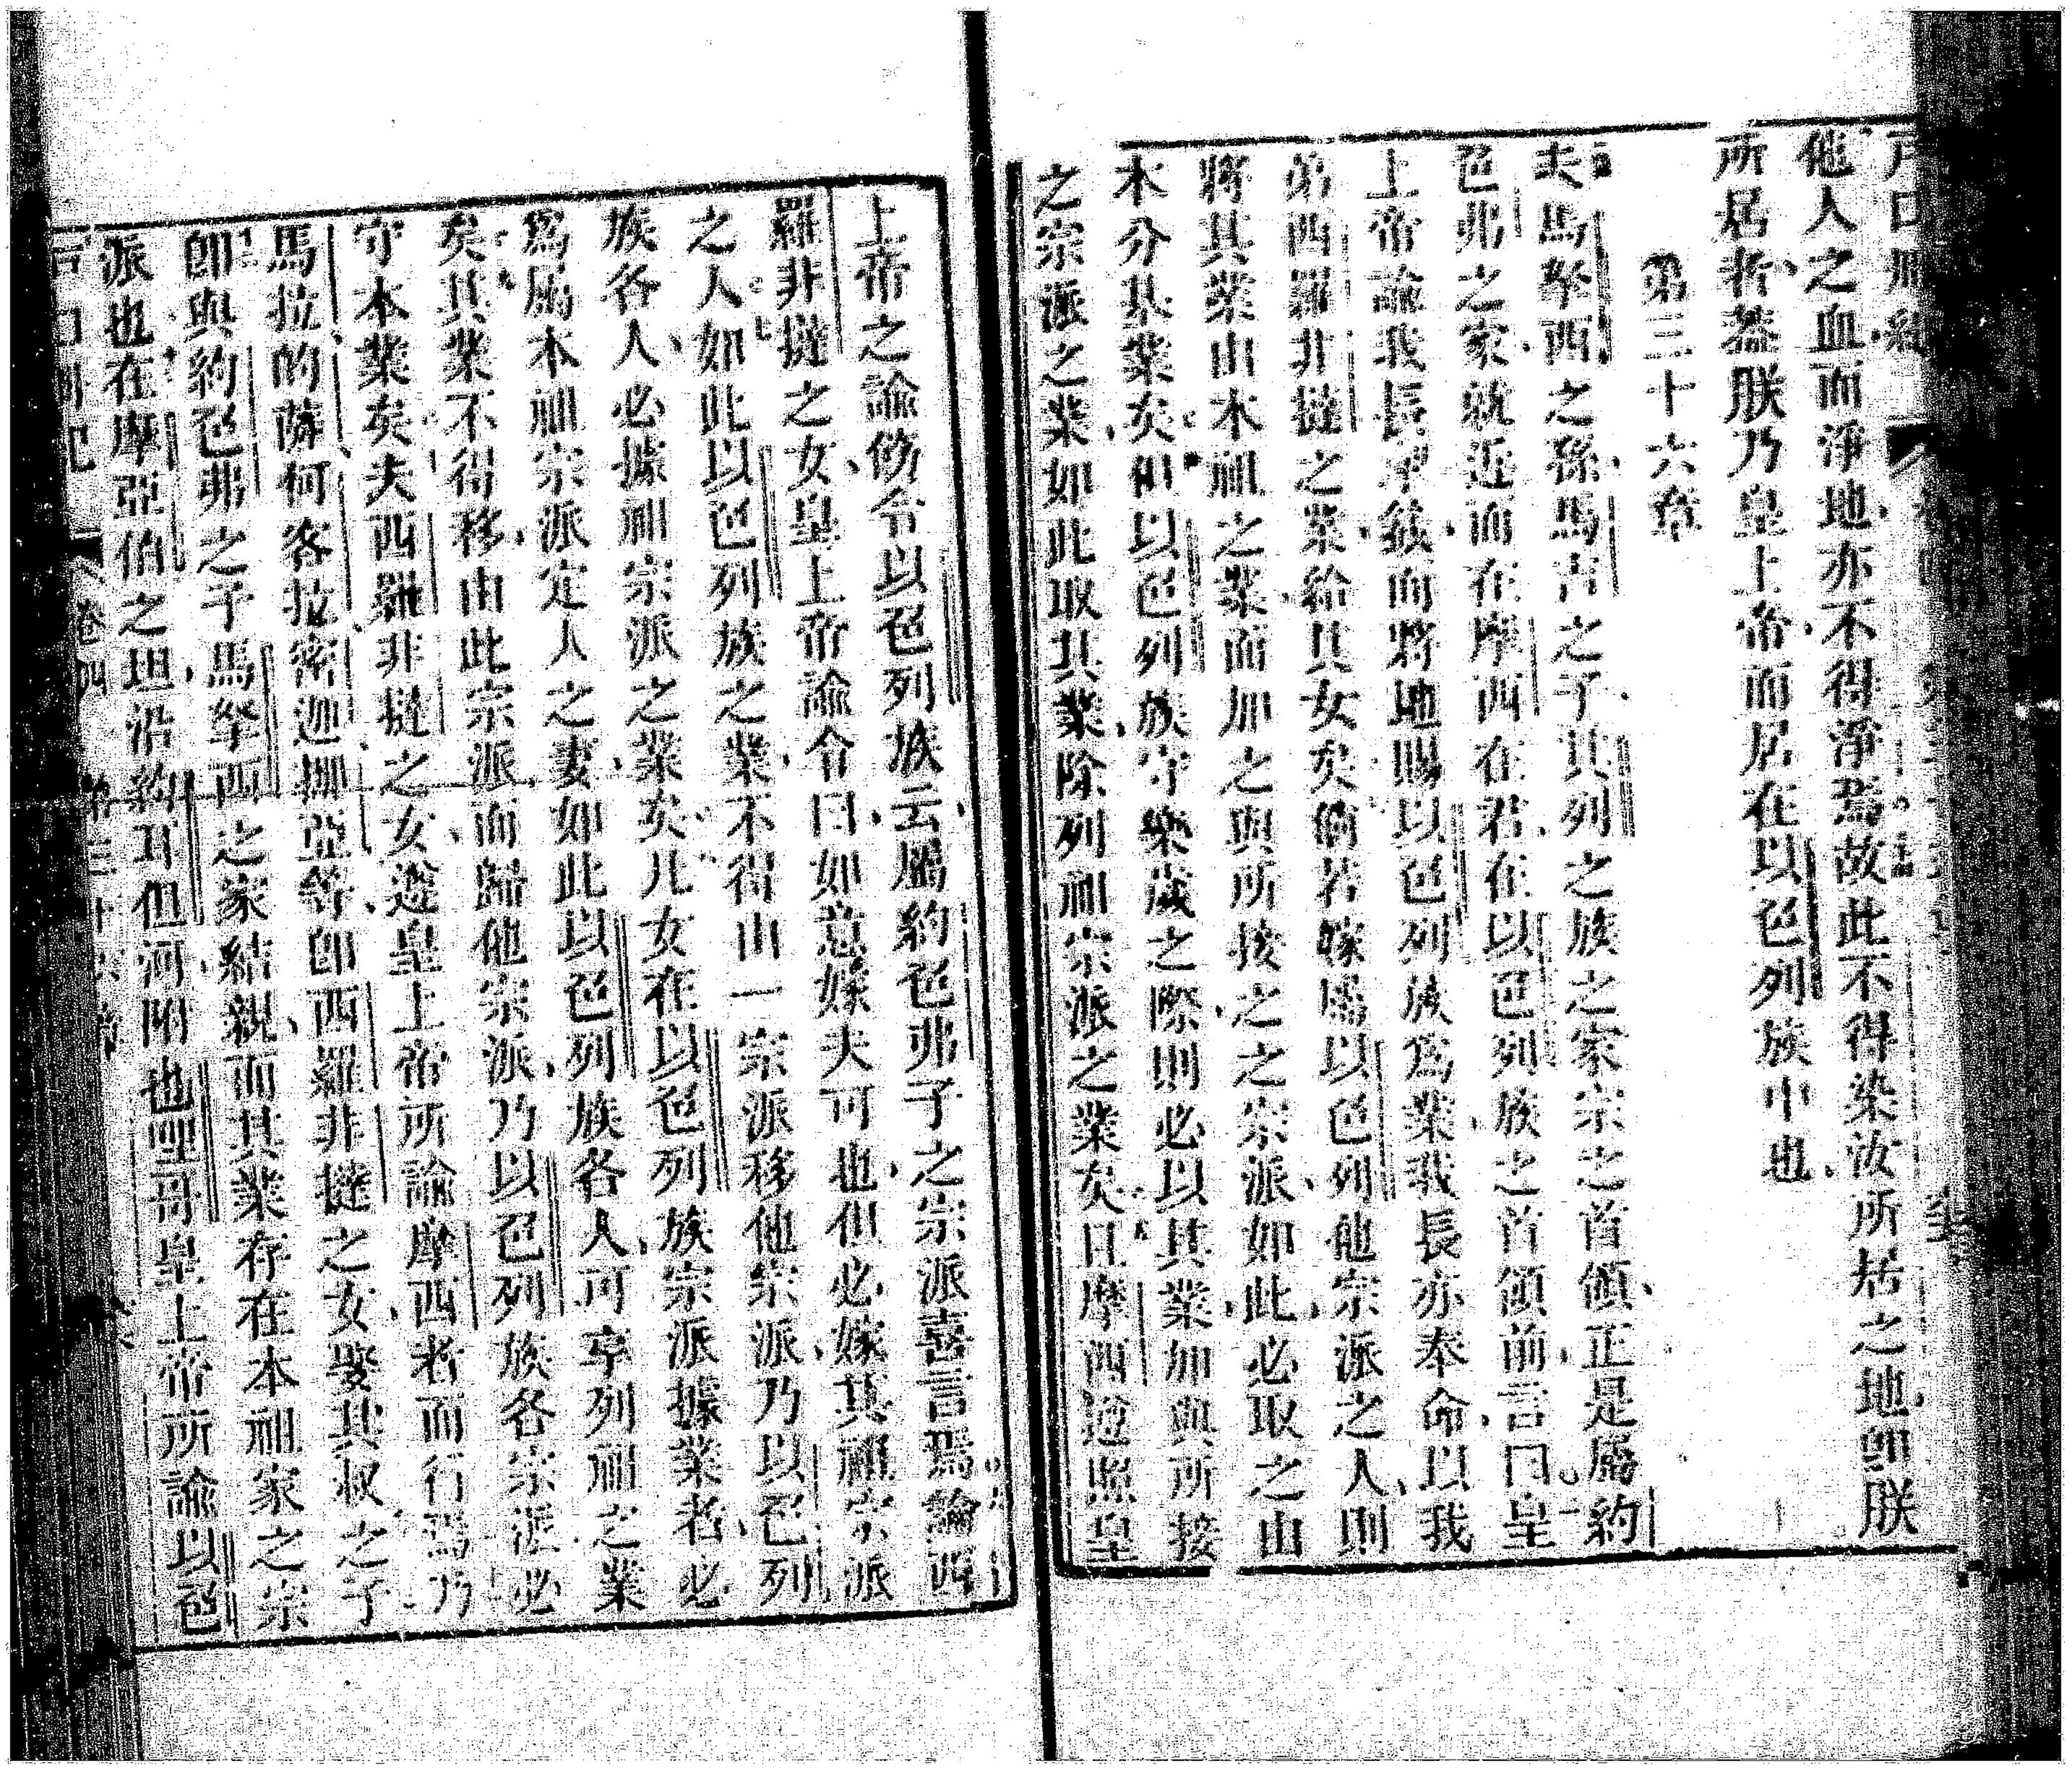 他人之血而淨地、亦不得淨焉故此不得染汝所居之地、卽朕
所居者、蓋朕乃皇上帝而居在以色列族中也、
第三十六章
夫馬拏西之孫、馬吉之子、其列之族之家宗之首領、正是屬約
色弗之家、就近而在摩西在君、在以色列族之首領前、言曰、皇
上帝諭我長
而將地賜以色列族爲業、我長亦奉命、以我
弟西羅非撻之業、給其女矣倘若嫁焉以色列他宗派之人、則
將其業由本祖之業、而加之與所接之之宗派、如此、必取之由
本分基業矣但以色列族守樂歲之際、則必以其業、加與所接
之宗派之業、如此取其業、除列祖宗派之業矣且摩西遵照皇
上帝之諭、飭令以色列族云、屬約色弗子之宗派喜言焉論西
羅非撻之女、皇上帝諭令曰、如意嫁夫可也、但必嫁其祖宗派
之人、如此以色列族之業、不得由一宗派移他宗派、乃以色列
族各人、必據祖宗派之業矣凡女在以色列族宗派據業者、必
爲屬本祖宗派定人之妻、如此以色列族各人、可享列祖之業
矣其業不得移、由此宗派而歸他宗派、乃以色列族各宗派必
守本業矣夫西羅非撻之女、遵皇上帝所諭摩西者而行焉乃
馬拉、的薩、何客拉、密迦、挪亞等、卽西羅非撻之女、娶其叔之子
卽與約色弗之子馬拏西之家結親、而其業存在本祖家之宗
派也在摩亞伯之坦、沿約耳但河、附也哩哥皇上帝所諭以色
卷四 第三十六章